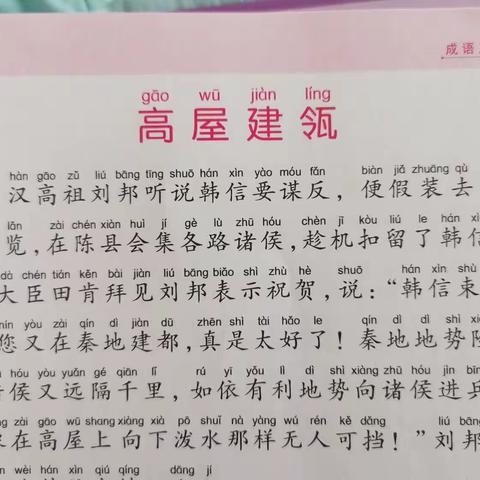 成语
gāo wū jiàn líng
高屋建瓴
hàn gāo zǔ liú bāng tīng shuō hán xìn yào móu fǎn biàn jiǎ zhuāng qù
汉高祖刘邦听说韩信要谋反，便假装去
lǎn zài chén xiàn huì jí gè lù zhū hóu chèn jī kòu liú le hán xìn
览，在陈县会集各路诸侯，趁机扣留了韩信
dà chén tián kěn bài jiàn liú bāng biǎo shì zhù hè shuō hán xìn shù
大臣田肯拜见刘邦表示祝贺，说：“韩信束
nín yòu zài qín dì jiàn dū zhēn shì tài hǎo le qín dì dì shì
您又在秦地建都，真是太好了！秦地地势
hóu yòu yuǎn gé qiān lǐ rú yī yǒu lì dì shì xiàng zhū hóu jìn bīng
侯又远隔千里，如依有利地势向诸侯进兵
zài gāo wū shang xiàng xià pō shuǐ nà yàng wú rén kě dǎng liú bāng
在高屋上向下泼水那样无人可挡！”刘邦
wèi hán xìn qiú qíng dāng jí